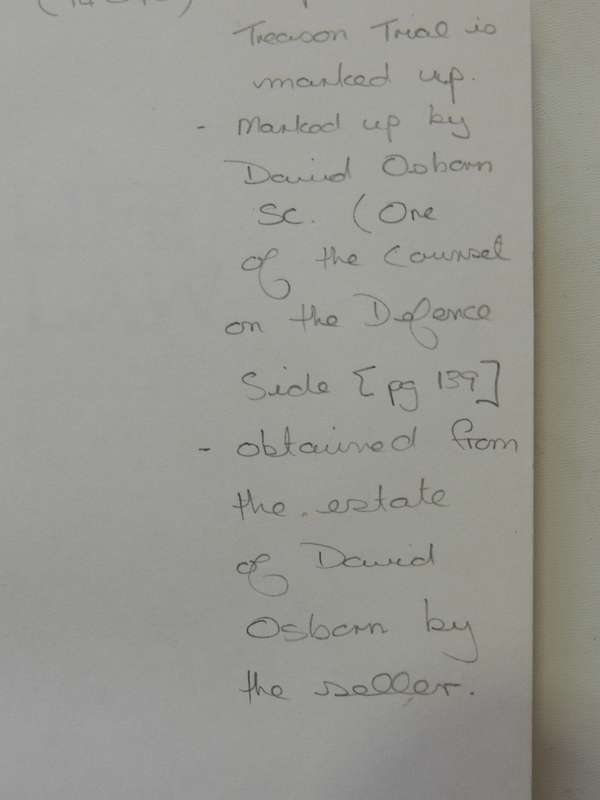 Treason Trial is
marked up.
- Marked up by
David Osborn
SC. (One
of the Counsel
on the Defence
Side [pg 139]
- obtained from
the estate
of David
Osborn by
the seller.